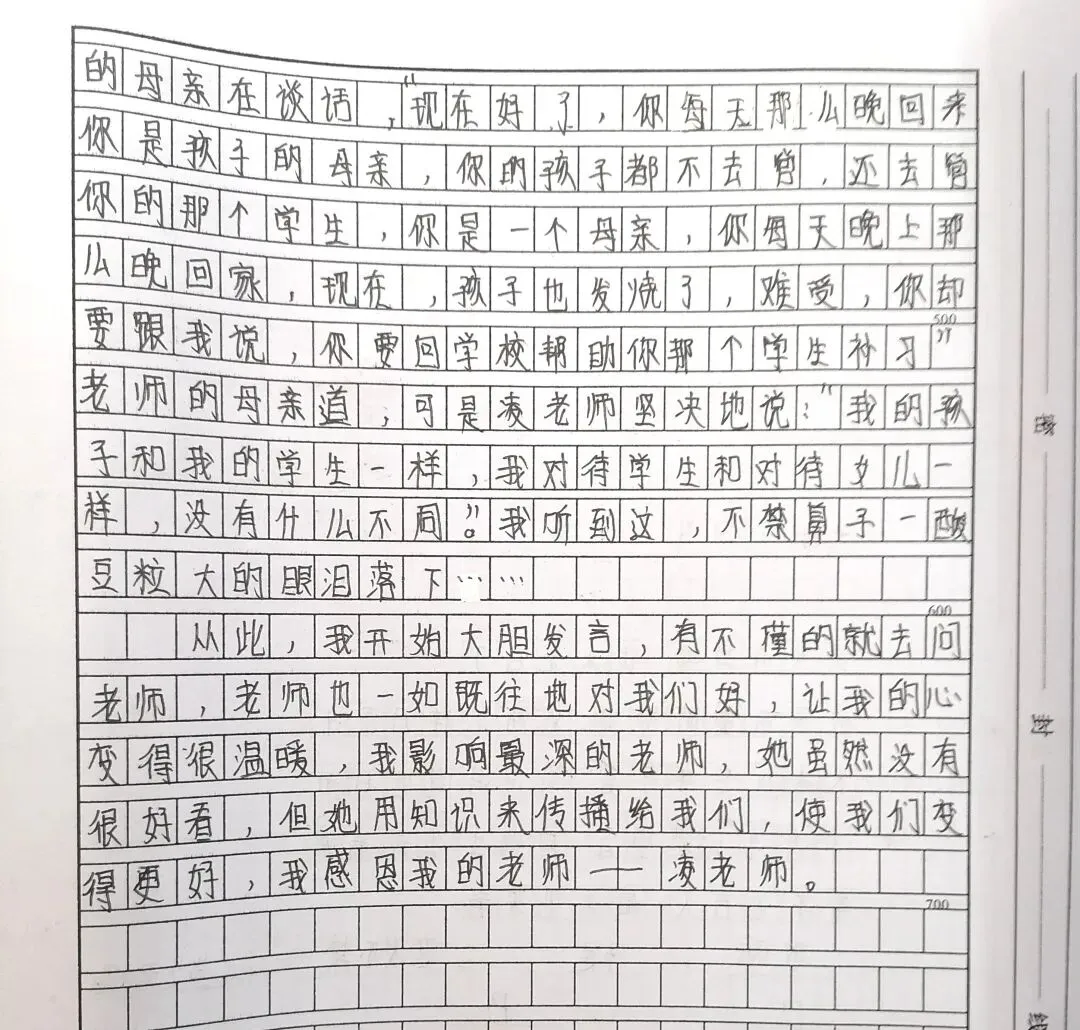 的母亲在谈话，“现在好了，你每天那么晚回来
你是孩子的母亲，你的孩子都不去管，还去管
你的那个学生，你是一个母亲，你每天晚上那
么晚回家，现在，孩子也发烧了，难受，你却
500
要跟我说，你要回学校帮助你那个学生补习”
老师的母亲道，可是凌老师坚决地说：“我的孩
子和我的学生一样，我对待学生和对待女儿一
样，没有什么不同”。我听到这，不禁鼻子一酸
豆粒大的眼泪落下……
600
从此，我开始大胆发言，有不懂的就去问
老师，老师也一如既往地对我们好，让我的心
变得很温暖，我影响最深的老师，她虽然没有
很好看，但她用知识来传播给我们，使我们变
得更好，我感恩我的老师——凌老师。
700
密
封